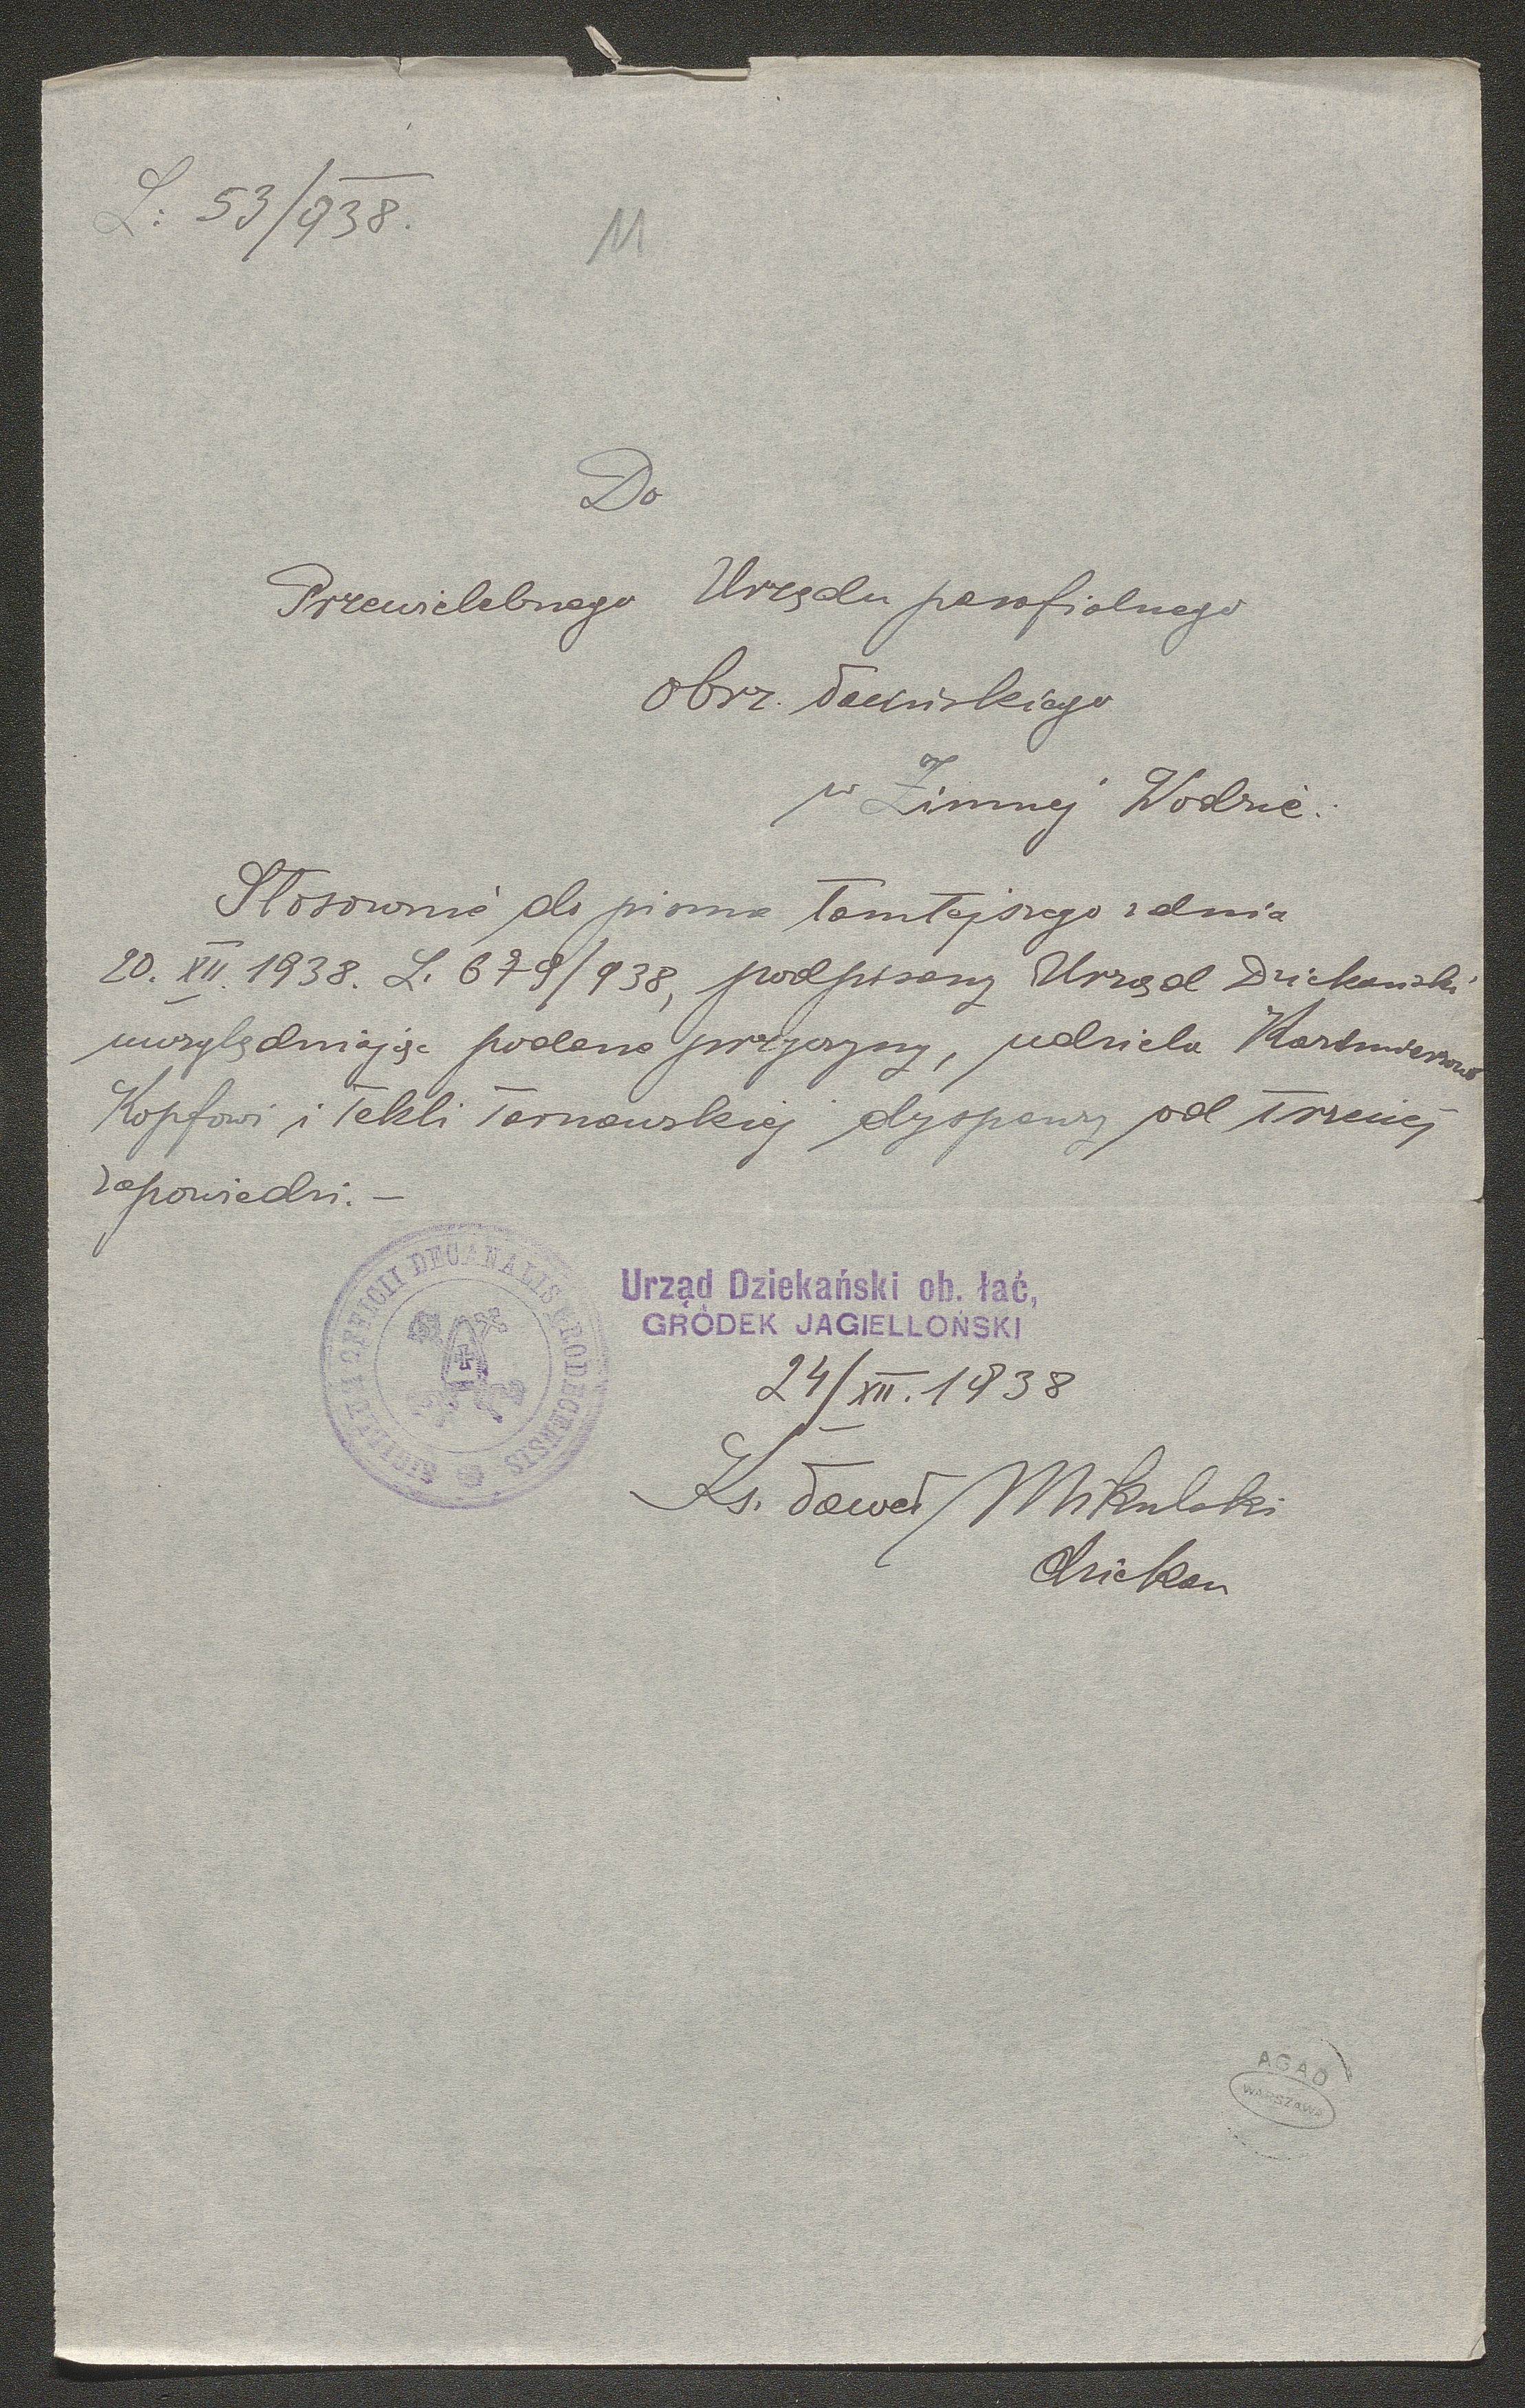 L: 53/938.
11
Do
Przewielebnego Urzędu parafialnego
obrz. łacińskiego
w Zimnej Wodzie.
Stosownie do pisma tamtejszego z dnia
20. XII. 1938. L. 679/938, podpisany Urząd Dziekański
uwzględniając podane przyczyny, udziela Kazimierzowi
Kopfowi i Tekli Tarnawskiej dyspensy od trzeciej
zapowiedzi. —
SIGILLUM OFFICII DECANALIS GRODECENSIS
Urząd Dziekański ob. łać,
GRÓDEK JAGIELLOŃSKI
24/XII. 1938
Ks. Paweł Mikulski
dziekan
AGAD
WARSZAWA